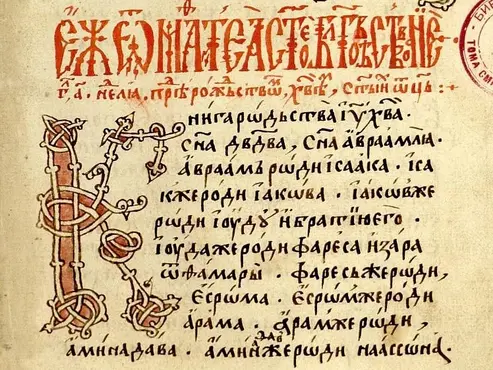 ЕЖЕ Ѿ МАТѲЕА СТ҃ОЕ
Гл҃а. нелїа. прѣⷣ рожьствоⷨ, хв҃ѣⷨ, ст҃ыⷯ ѿц҃ь :·
Книга рѡдьства іу҃ хв҃а ·
сн҃а дв҃два, сн҃а авраамлꙗ ·
авраамъ рѡди ісаака · іса
к же роди іакѡва · іакѡвже
рѡди іоуду и братїю его ·
іоуда же роди фареса и зара
ѿ ѳамары · фаресь же рѡди,
есрѡма · есрѡмже роди
арама · арамже рѡди,
аминадава · аминадавже рѡди наассѡна